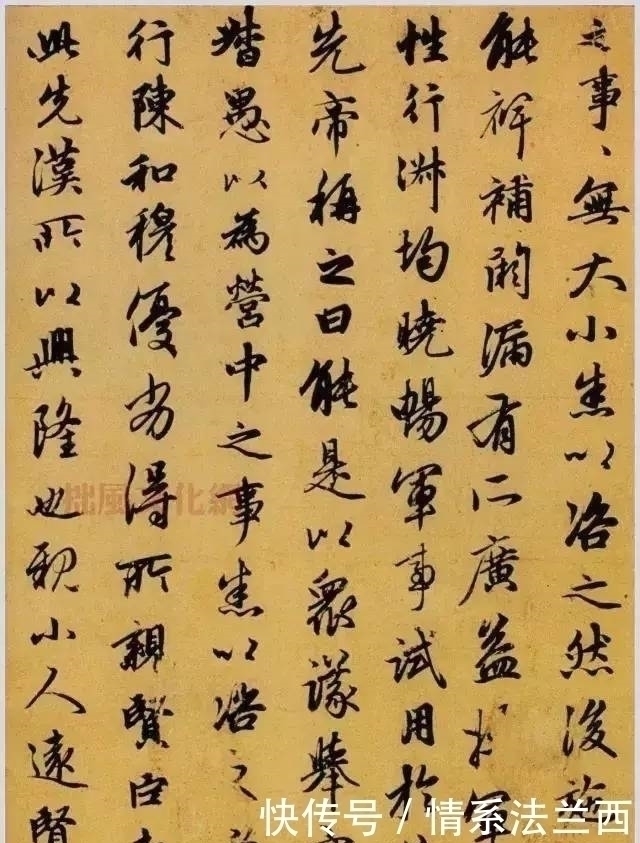 之事〻無大小悉以咨之然後施
能裨補闕漏有所廣益将軍
性行淑均曉暢軍事試用於
先帝稱之曰能是以衆議舉
督愚以為營中之事悉以咨之
行陳和穆優劣得所親賢臣
此先漢所以興隆也親小人遠賢
拙風文化網
快传号 / 情系法兰西